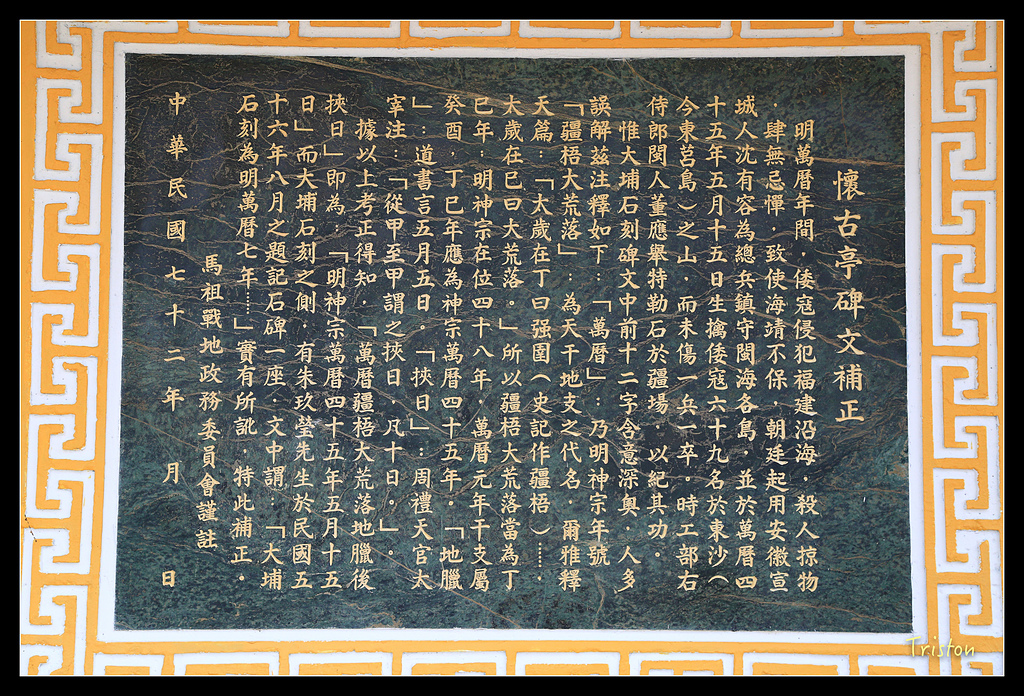 懷古亭碑文補正
明萬曆年間，倭寇侵犯福建沿海，殺人掠物
，肆無忌憚，致使海靖不保，朝廷起用安徽宣
城人沈有容為總兵鎮守閩海各島，並於萬曆四
十五年五月十五日生擒倭寇六十九名於東沙（
今東莒島）之山，而未傷一兵一卒。時工部右
侍郎閩人董應舉特勒石於疆場，以紀其功。
惟大埔石刻碑文中前十二字含意深奧，人多
誤解茲注釋如下：「萬曆」：乃明神宗年號
「疆梧大荒落」：為天干地支之代名，爾雅釋
天篇：「太歲在丁曰强圉（史記作疆梧）……，
太歲在巳曰大荒落。」所以疆梧大荒落當為丁
巳年；明神宗在位四十八年，萬曆元年干支屬
癸酉，丁巳年應為神宗萬曆四十五年。「地臘
」：道書言五月五日。「挾日」：周禮天官太
宰注：「從甲至甲謂之挾日，凡十日。」。
據以上考正得知，「萬曆疆梧大荒落地臘後
挾日」即為：「明神宗萬曆四十五年五月十五
日」而大埔石刻之側，有朱玖瑩先生於民國五
十六年八月之題記石碑一座，文中謂，「大埔
石刻為明萬曆七年……」實有所訛，特此補正。
馬祖戰地政務委員會謹註
中華民國七十二年 月 日
Triston